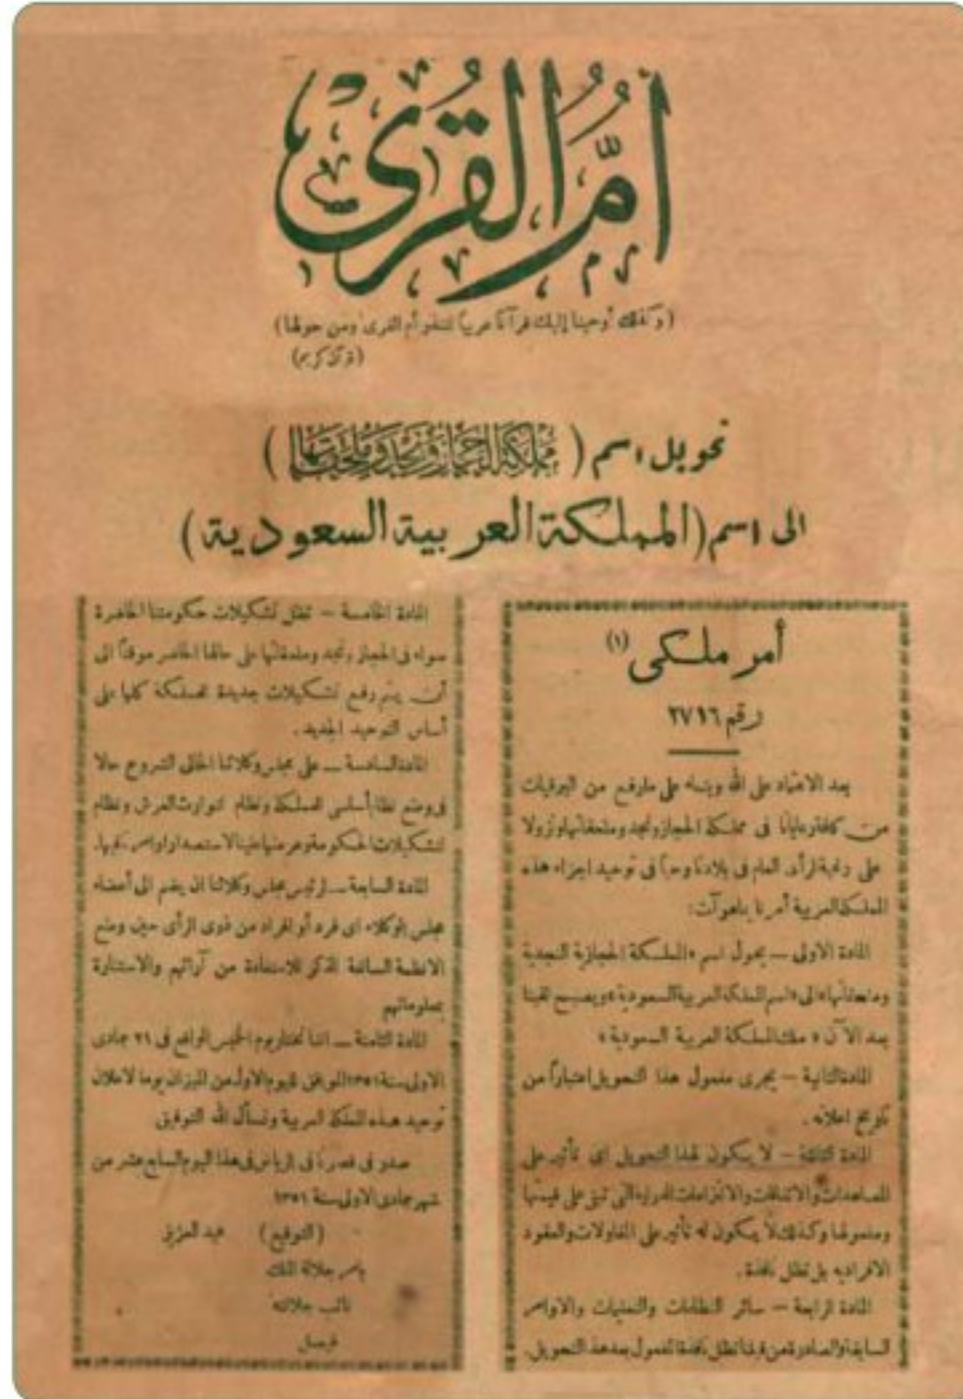 أُمُّ القُرَى
(وكذلك أوحينا إليك قرآنًا عربيًا لتنذر أم القرى ومن حولها)
(قرآن كريم)
تحويل اسم (مملكة الحجاز ونجد وملحقاتها)
الى اسم (المملكة العربية السعودية)
أمر ملكى (١)
رقم ٢٧١٦
بعد الاعتماد على الله وبناء على ما رفع من البرقيات
من كافة رعايانا فى مملكة الحجاز ونجد وملحقاتها ونزولا
على رغبة الرأى العام فى بلادنا وحبا فى توحيد اجزاء هذه
المملكة العربية أمرنا بما هو آت:
المادة الاولى — يحول اسم «المملكة الحجازية النجدية
وملحقاتها» الى «اسم المملكة العربية السعودية» ويصبح لقبنا
بعد الآن «ملك المملكة العربية السعودية»
المادة الثانية — يجرى مفعول هذا التحويل اعتباراً من
تاريخ اعلانه .
المادة الثالثة — لا يكون لهذا التحويل اى تأثير على
المعاهدات والاتفاقات والالتزامات الدولية التى تبقى على قيمتها
ومفعولها وكذلك لا يكون له تأثير على المقاولات والعقود
الافرادية بل تظل نافذة .
المادة الرابعة — سائر النظامات والتعليمات والاوامر
السابقة والصادرة من قبلنا تظل نافذة المفعول بعد هذا التحويل .
المادة الخامسة — تظل تشكيلات حكومتنا الحاضرة
سواء فى الحجاز ونجد وملحقاتها على حالها الحاضر موقتاً الى
أن يتم وضع تشكيلات جديدة للمملكة كلها على
أساس التوحيد الجديد .
المادة السادسة — على مجلس وكلائنا الحالى الشروع حالا
فى وضع نظام أساسى للمملكة ونظام لتوارث العرش ونظام
لتشكيلات الحكومة وعرضها علينا لاستصدار اوامرنا فيها.
المادة السابعة — لرئيس مجلس وكلائنا ان يضم الى أعضاء
مجلس الوكلاء اى فرد أو افراد من ذوى الرأى حين وضع
الانظمة السالفة الذكر للاستفادة من آرائهم والاستنارة
بمعلوماتهم
المادة الثامنة — اننا نختار يوم الخميس الواقع فى ٢١ جمادى
الاولى سنة ١٣٥١ الموافق لليوم الاول من الميزان يوما لاعلان
توحيد هذه المملكة العربية ونسأل الله التوفيق
صدر فى قصرنا فى الرياض فى هذا اليوم السابع عشر من
شهر جمادى الاولى سنة ١٣٥١
(التوقيع) عبد العزيز
بامر جلالة الملك
نائب جلالته
فيصل